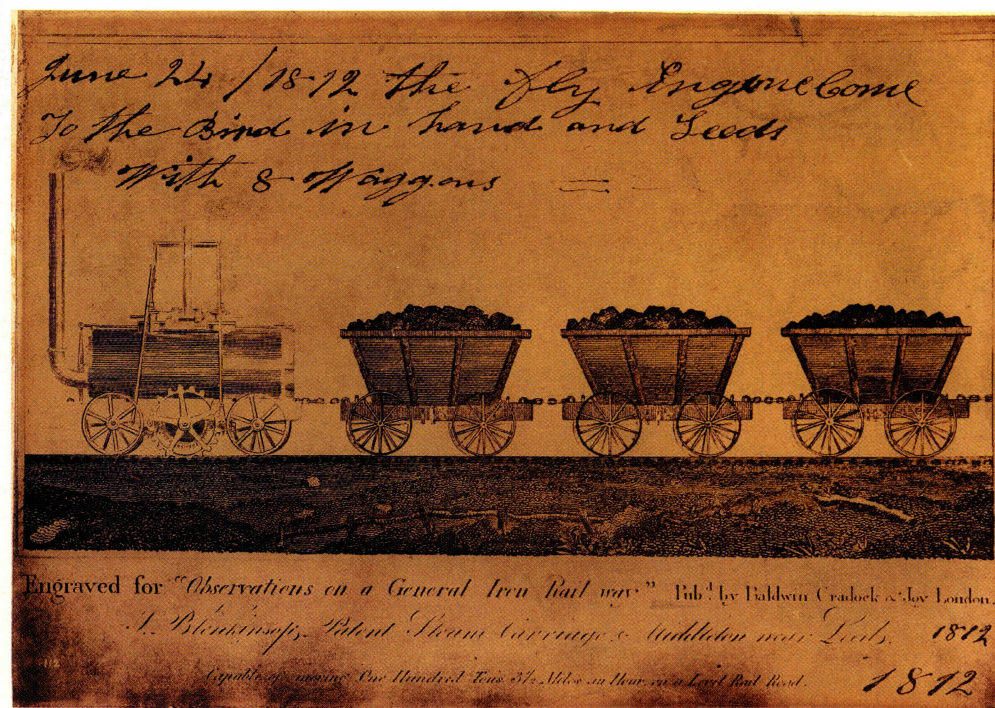 June 24 / 1812 the fly Engine Come
To the Bird in hand and Leeds
With 8 Waggons
Engraved for "Observations on a General Iron Rail way" Pubd. by Baldwin Cradock & Joy London.
Blenkinsop's Patent Steam Carriage, Middleton near Leeds. 1812
Capable of moving One Hundred Tons 3½ Miles an Hour, on a Level Rail Road.
1812